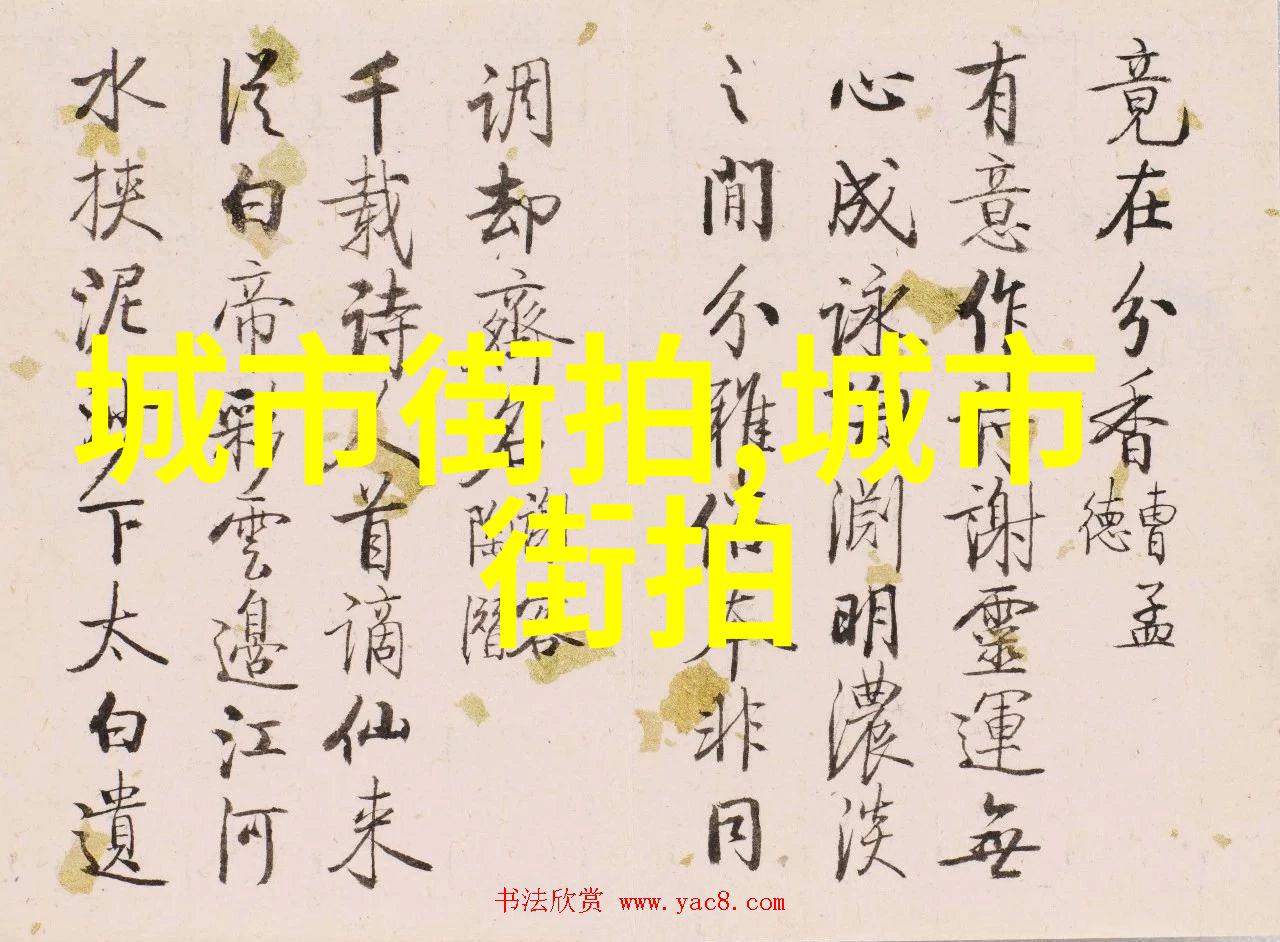 竟在分香 曹孟德
有意作詩謝靈運無
心成詠陶淵明濃淡
之間分雅俗本非同
调却齊名 陶潛
千载诗人首谪仙来
從白帝彩雲邊江河
水挾泥沙下太白遺
城市街拍,城市
街拍
书法欣赏 www.yac8.com